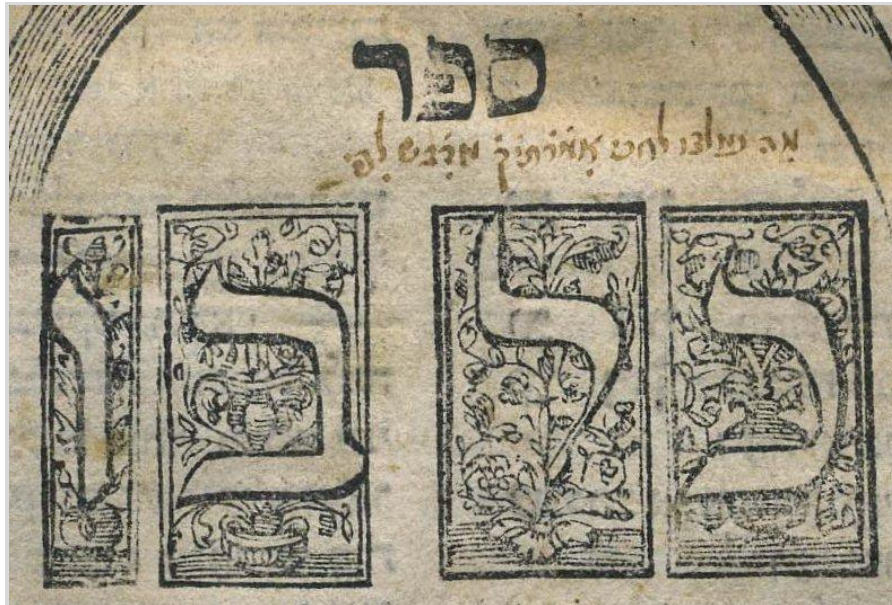 ספר
מה נמלצו לחכי אמרתיך מדבש לפי
כל בו